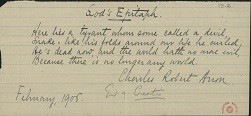 13-2
God's Epitaph.
Here lies a tyrant whom some called a devil,
Snake-like his folds around my life he curled,
He's dead now, and the world hath no more evil
Because there is no longer any world.
Charles Robert
February, 1905